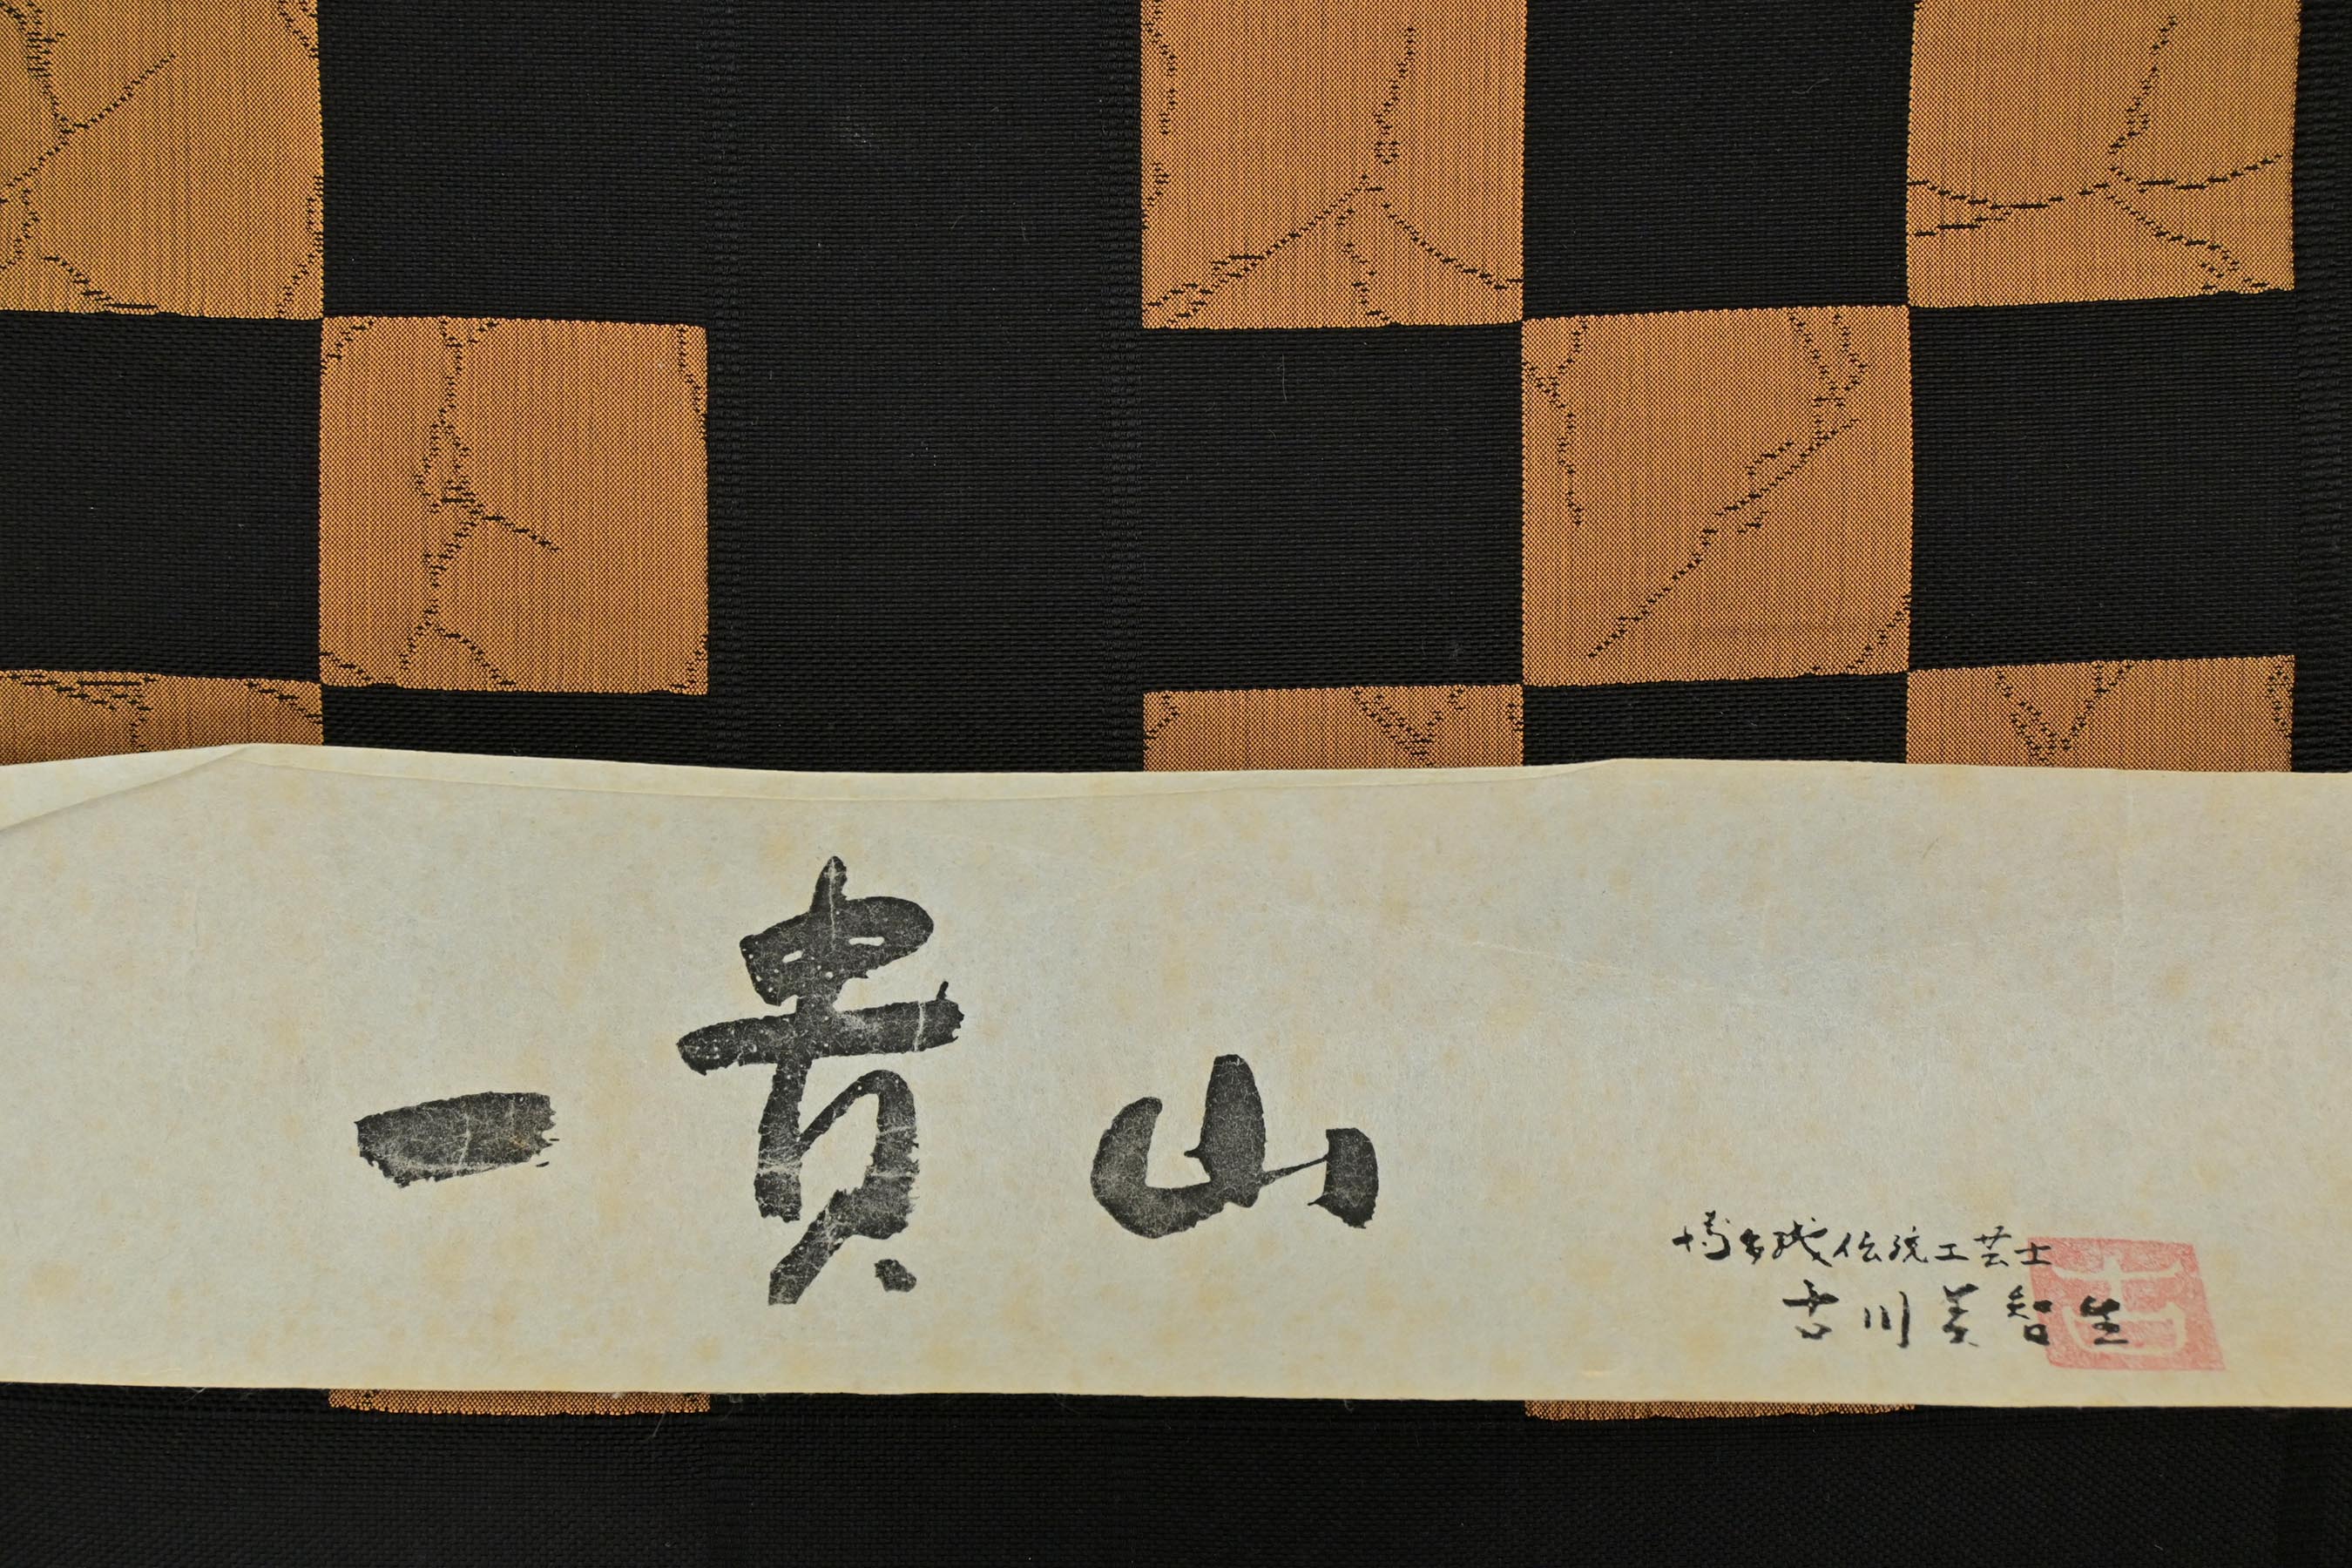 一貴山
博多織伝統工芸士
古川美智生
吉